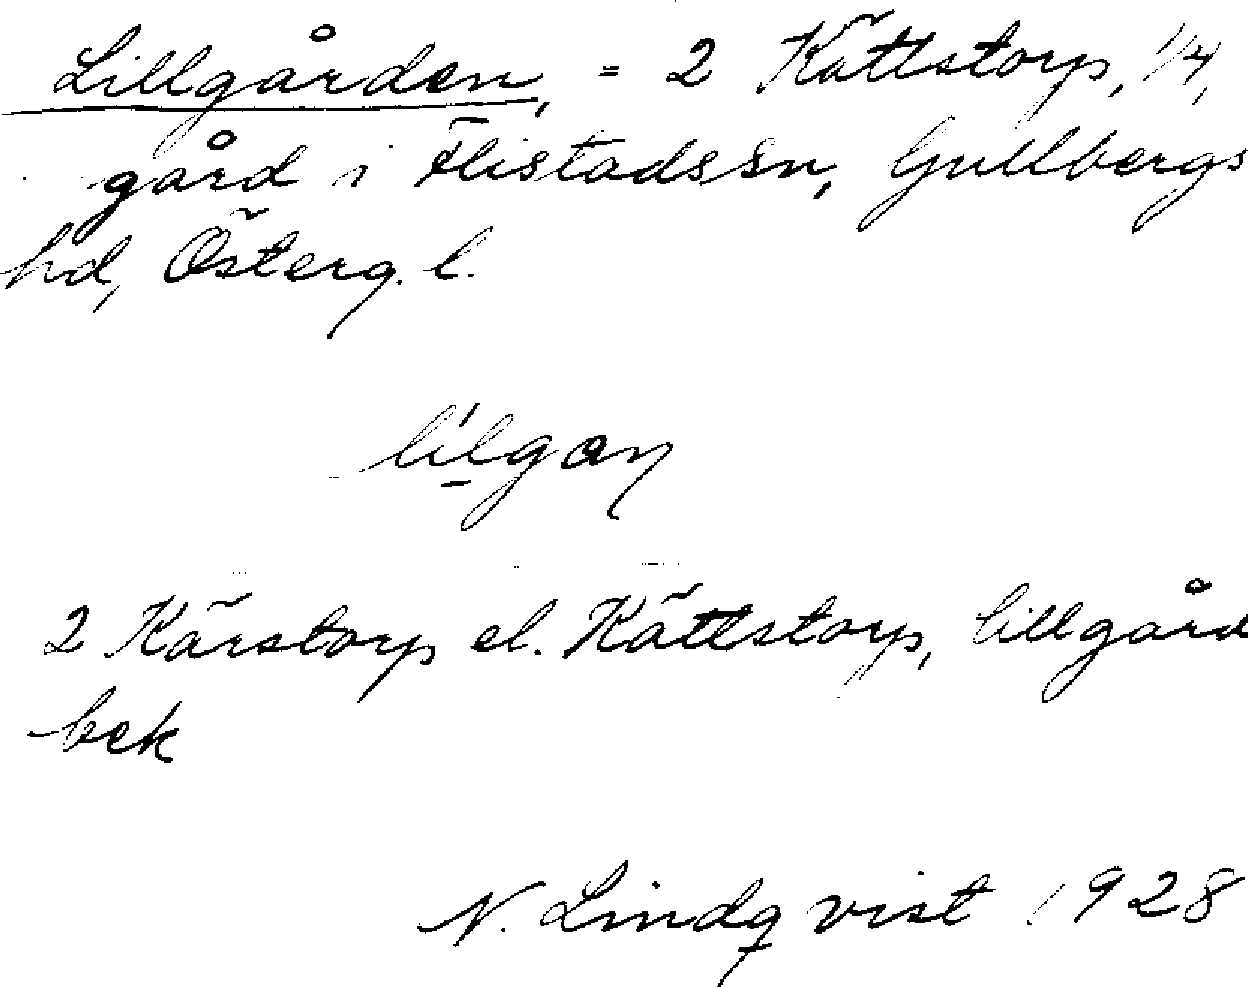 Lillgården, = 2 Kättstorp, 1/4,
gård i Flistads sn, Gullbergs
hd, Österg. l.
2 Kärstorp el. Kättstorp, lillgård
bek
N. Lindqvist 1928